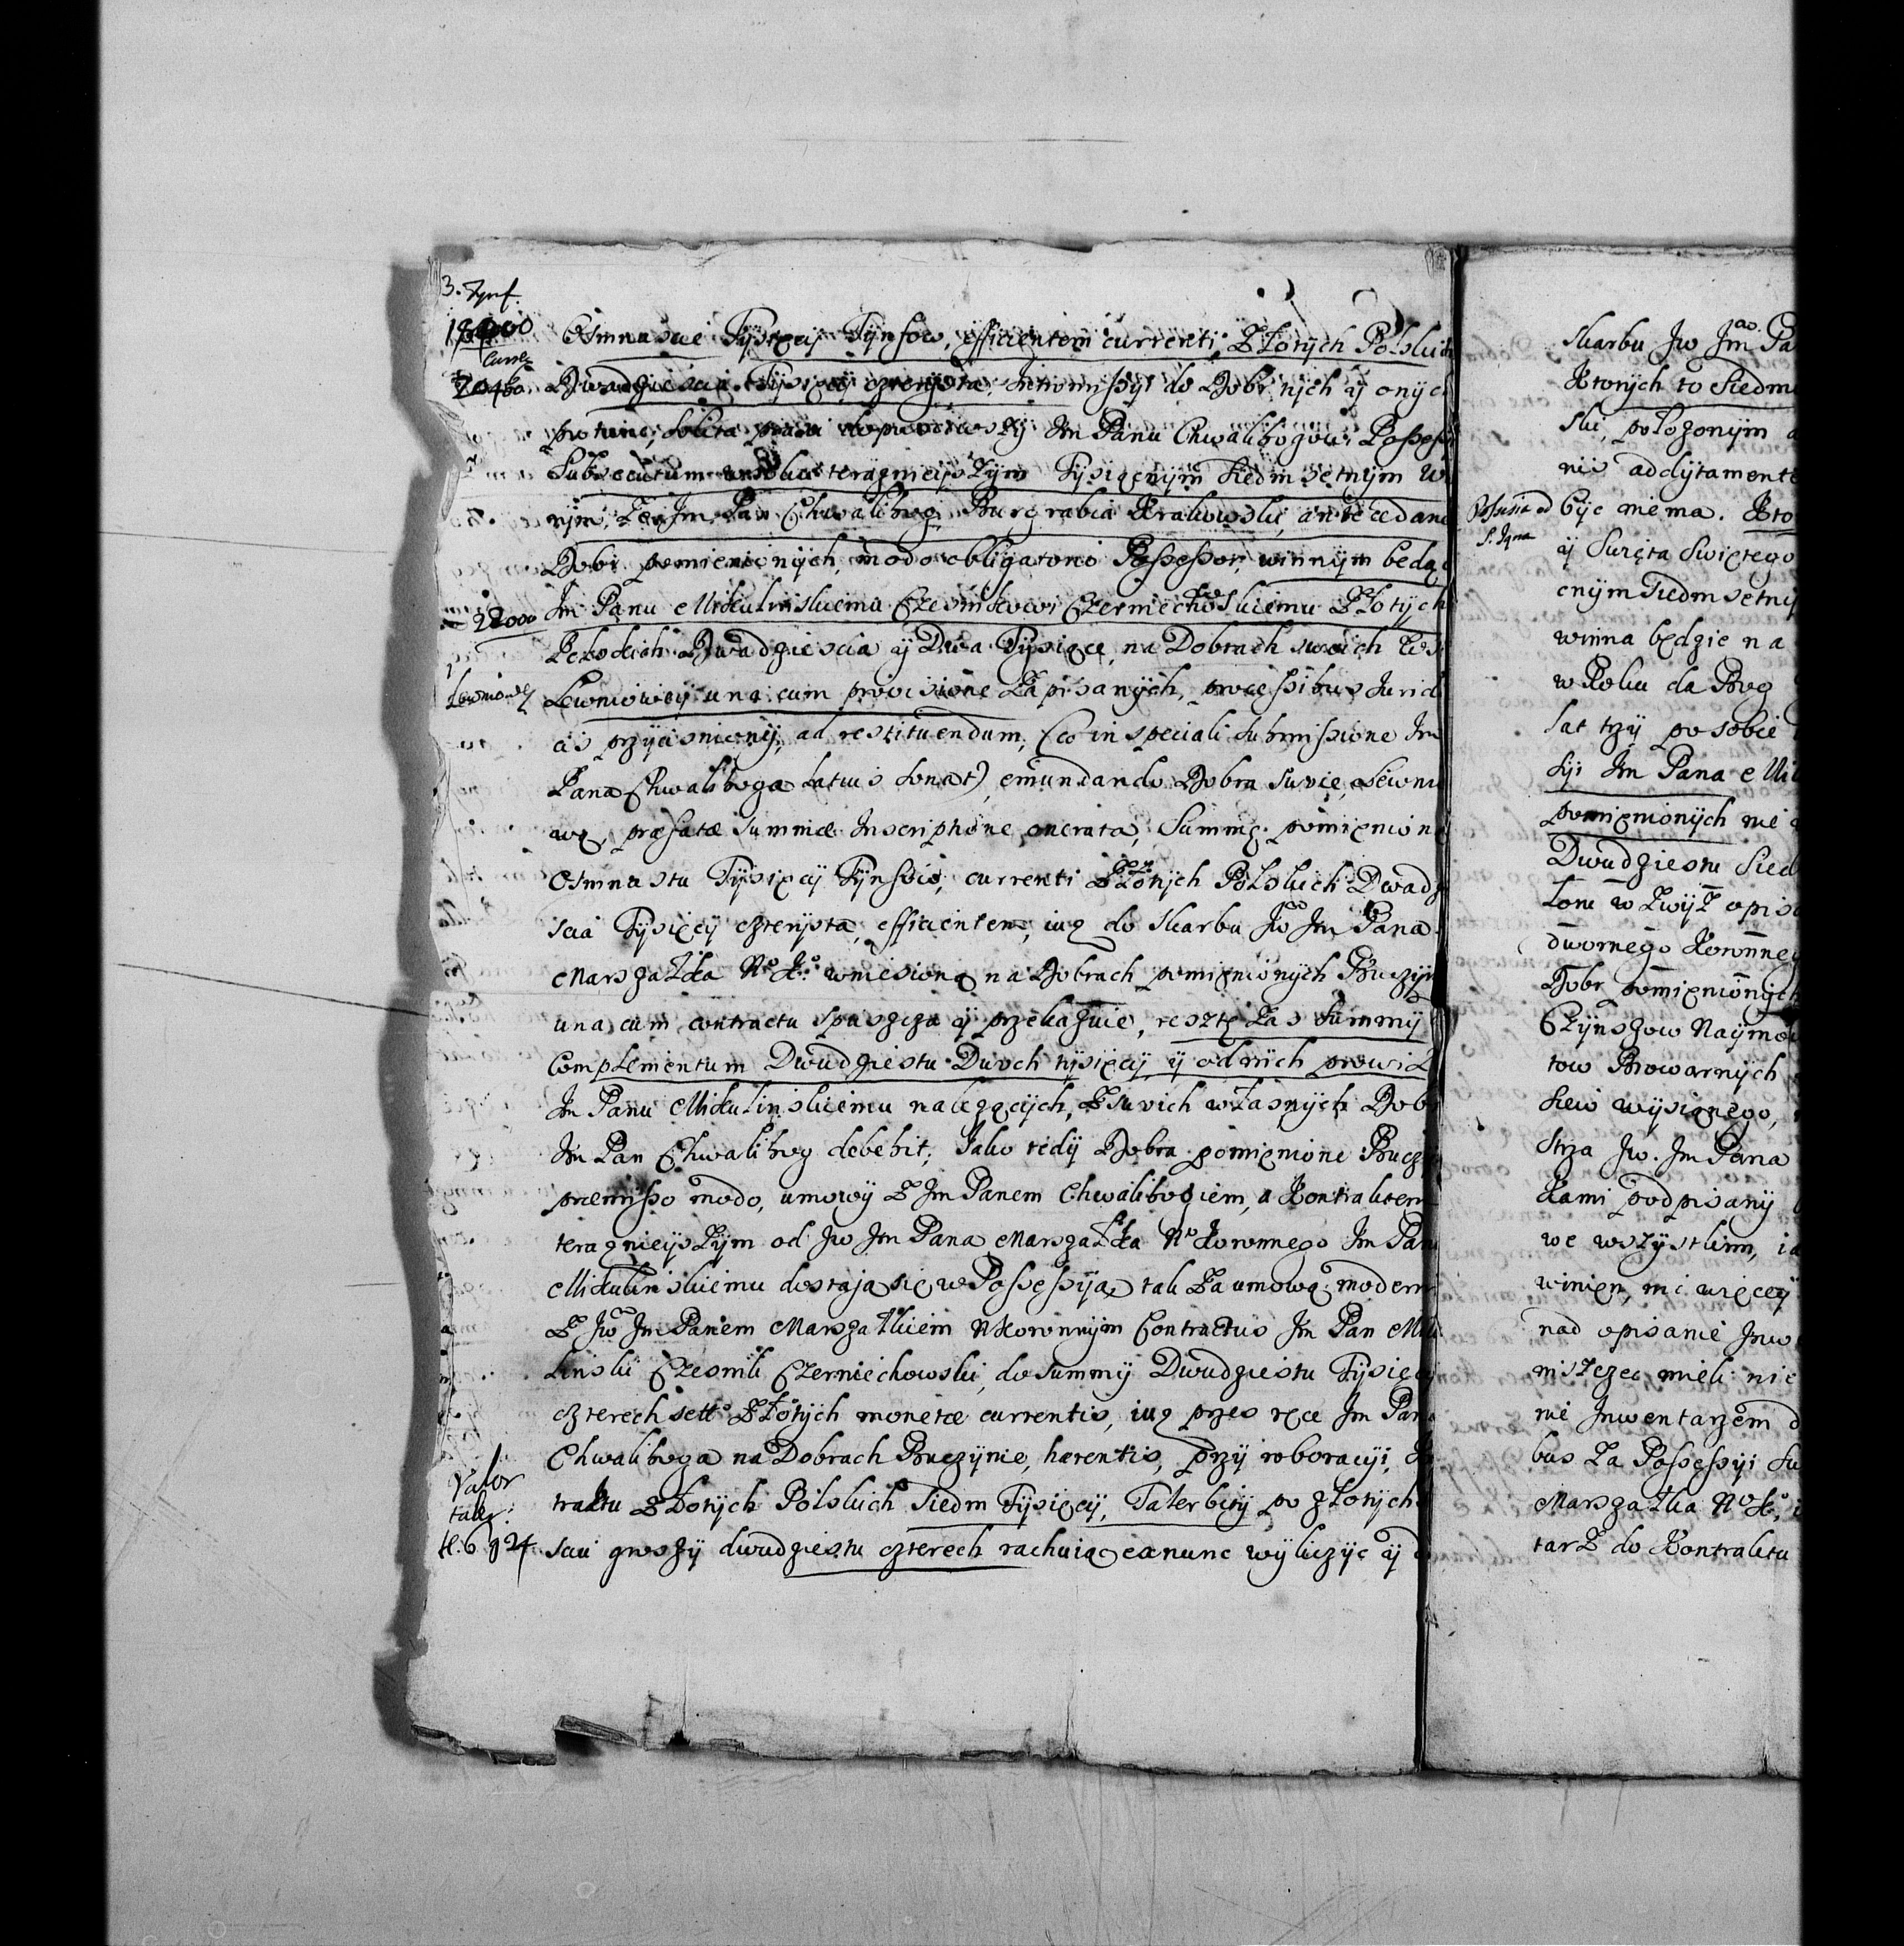 3. Tynf.
18000
Curre
20400.
Osmnascie Tysięcy Tynfow, efficientem currenti Złotych Polskich
Dwadziescia Tysięcy czterysta. Intromissyi do Dobr tych y onych
pro tunc, solita praxi doprowadziwszy Jm Panu Chwalibogowi Possess
Subsecutum w roku teraznieyszym Tysięcznym Siedmsetnym
nym, Ze Jm Pan Chwalibog Burgrabia Krakowski, antecedane
Dobr pomienionych, modo obligatorio Possessor, winnym będąc
22000
Jm Panu Mikulinskiemu Czesnikowi Czerniechowskiemu Złotych
Polskich Dwadziescia y Dwa Tysiące, na Dobrach swoich
Lewniowey
Lewniowey una cum provisione Zapisanych, processibus Jurid
cis przycisniony, ad restituendum, (co in speciali submissione Jm
Pana Chwaliboga latius sonat) emundando Dobra swoie, Lewnio
wę, præfatæ summæ Inscriptione onerata, Summę pomięnioną
Osmnastu Tysięcy Tynfow, currenti Złotych Polskich Dwadzie
scia Tysięcy czterysta, efficientem, iuz do skarbu Jw Jm Pana
Marszałka No Ko wniesioną na Dobrach pomięnionych Buczyn
una cum contractu spuszcza y przekazuie, resztę Zas Summy
Complementum Dwudziestu Dwoch tysięcy y od nich prowiz
Jm Panu Mikulinskiemu nalezących, Z swoich własnych Dobr
Jm Pan Chwalibog debebit; Jako tedy Dobra pomięnione Bucz
præmisso modo, umowy Z Jm Panem Chwalibogiem, a Kontraktem
teraznieyszym od Jw Jm Pana Marszałka No Koronnego Jm Panu
Mikulinskiemu dostaja się w Possessyją tak Za umową modern
Z Jw Jm Panem Marszałkiem N Koronnym Contractus Jm Pan Miku
linski Czesnik Czerniechowski, do summy Dwudziestu Tysięcy
czterech sett Złotych monetæ currentis, iuz przes ręce Jm Pana
Chwaliboga na Dobrach Buczynie, hærentis, przy roboracyi,
Valor
taler:
tl. 6 g 24
traktu Złotych Polskich Siedm Tysięcy, Taler bity po złotych
sciu groszy dwudziestu czterech rachuiąc exnunc wyliczyc y
skarbu Jw Jm Pa
Ktorych to Siedm
ski, połozonym
nis addytament
S. Jana
byc niema. Kto
y Swięta Swiętego
cnym Siedmsetny
winna będzie na
w Roku da Bog
lat trzy po sobie
syi Jm Pana Mik
pomięnionych nie
Dwudziestu Sied
Lone w Zwyz opis
dwornego Koronneg
Dobr pomięnionych
Czynszow Naymo
tow Browarnych
siew wysianego,
strza Jw. Jm Pana
Kami podpisany
we wszystkim, ia
winien, ni więcey
nad opisanie Inw
niszczec mieli nie
nie Inwentarzem d
bus Za Possessyi Su
Marszałka No Ko,
tarz do Kontraktu